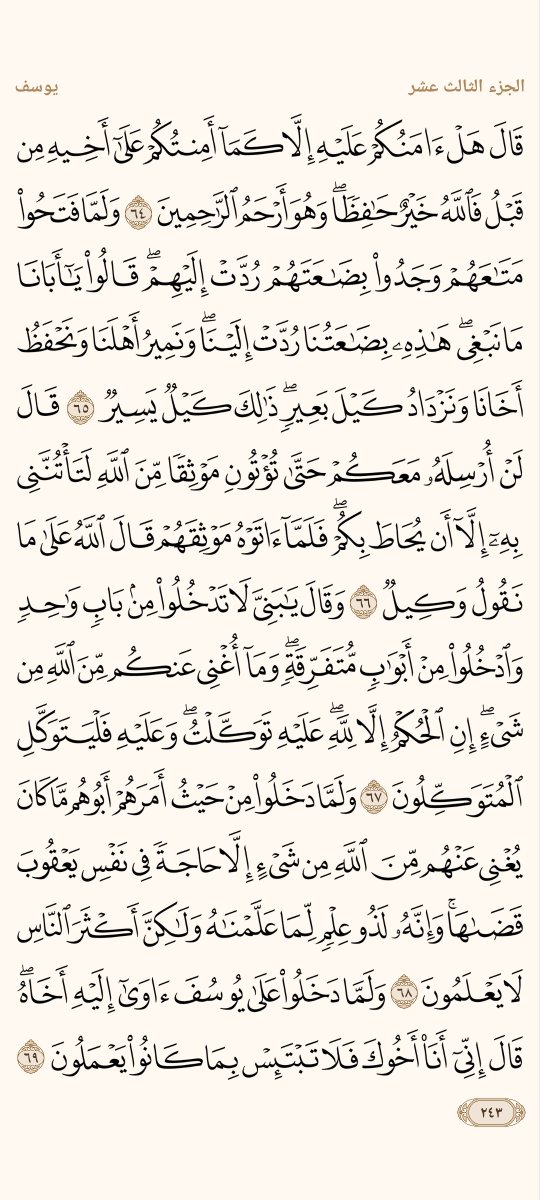 الجزء الثالث عشر
يوسف
قَالَ هَلْ ءَامَنُكُمْ عَلَيْهِ إِلَّا كَمَآ أَمِنتُكُمْ عَلَىٰٓ أَخِيهِ مِن
قَبْلُ فَٱللَّهُ خَيْرٌ حَٰفِظًۭاۖ وَهُوَ أَرْحَمُ ٱلرَّٰحِمِينَ ٦٤ وَلَمَّا فَتَحُوا۟
مَتَٰعَهُمْ وَجَدُوا۟ بِضَٰعَتَهُمْ رُدَّتْ إِلَيْهِمْۖ قَالُوا۟ يَٰٓأَبَانَا
مَا نَبْغِىۖ هَٰذِهِۦ بِضَٰعَتُنَا رُدَّتْ إِلَيْنَاۖ وَنَمِيرُ أَهْلَنَا وَنَحْفَظُ
أَخَانَا وَنَزْدَادُ كَيْلَ بَعِيرٍۢۖ ذَٰلِكَ كَيْلٌۭ يَسِيرٌۭ ٦٥ قَالَ
لَنْ أُرْسِلَهُۥ مَعَكُمْ حَتَّىٰ تُؤْتُونِ مَوْثِقًۭا مِّنَ ٱللَّهِ لَتَأْتُنَّنِى
بِهِۦٓ إِلَّآ أَن يُحَاطَ بِكُمْۖ فَلَمَّآ ءَاتَوْهُ مَوْثِقَهُمْ قَالَ ٱللَّهُ عَلَىٰ مَا
نَقُولُ وَكِيلٌۭ ٦٦ وَقَالَ يَٰبَنِىَّ لَا تَدْخُلُوا۟ مِنۢ بَابٍۢ وَٰحِدٍۢ
وَٱدْخُلُوا۟ مِنْ أَبْوَٰبٍۢ مُّتَفَرِّقَةٍۢۖ وَمَآ أُغْنِى عَنكُم مِّنَ ٱللَّهِ مِن
شَىْءٍۖ إِنِ ٱلْحُكْمُ إِلَّا لِلَّهِۖ عَلَيْهِ تَوَكَّلْتُۖ وَعَلَيْهِ فَلْيَتَوَكَّلِ
ٱلْمُتَوَكِّلُونَ ٦٧ وَلَمَّا دَخَلُوا۟ مِنْ حَيْثُ أَمَرَهُمْ أَبُوهُم مَّا كَانَ
يُغْنِى عَنْهُم مِّنَ ٱللَّهِ مِن شَىْءٍ إِلَّا حَاجَةًۭ فِى نَفْسِ يَعْقُوبَ
قَضَىٰهَاۚ وَإِنَّهُۥ لَذُو عِلْمٍۢ لِّمَا عَلَّمْنَٰهُ وَلَٰكِنَّ أَكْثَرَ ٱلنَّاسِ
لَا يَعْلَمُونَ ٦٨ وَلَمَّا دَخَلُوا۟ عَلَىٰ يُوسُفَ ءَاوَىٰٓ إِلَيْهِ أَخَاهُۖ
قَالَ إِنِّىٓ أَنَا۠ أَخُوكَ فَلَا تَبْتَئِسْ بِمَا كَانُوا۟ يَعْمَلُونَ ٦٩
٢٤٣